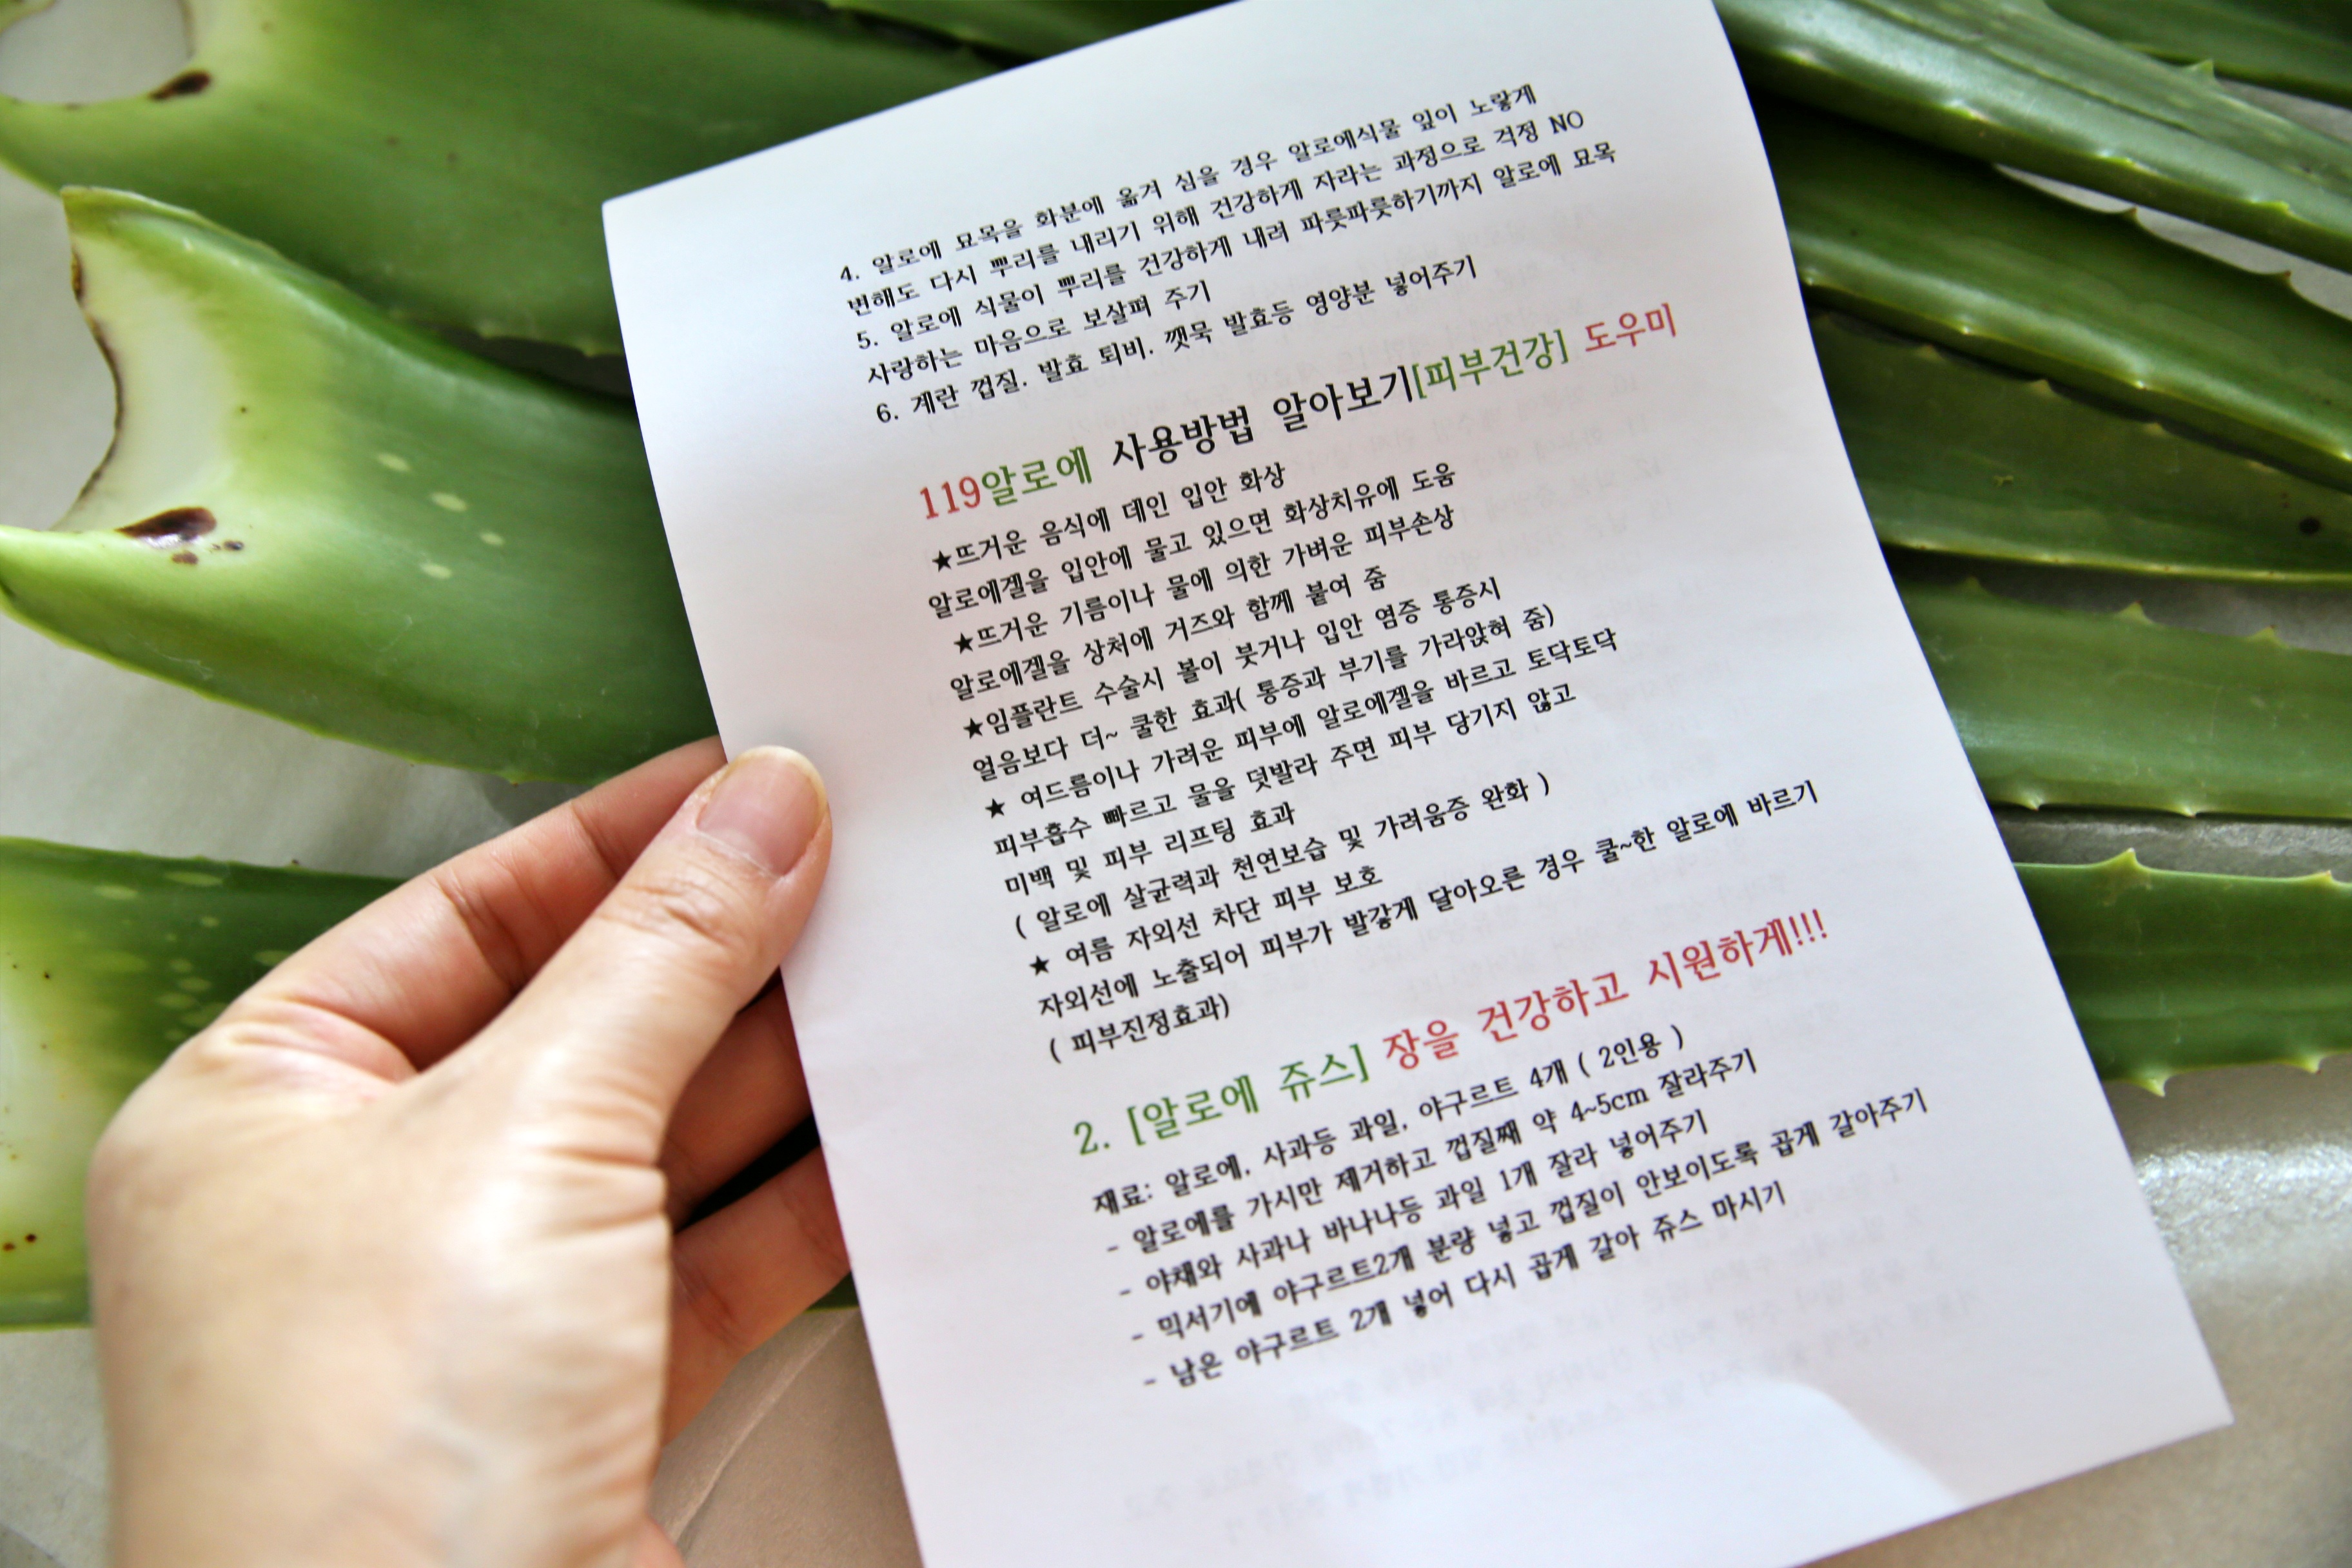 4. 알로에 묘목을 화분에 옮겨 심을 경우 알로에식물 잎이 노랗게
변해도 다시 뿌리를 내리기 위해 건강하게 자라는 과정으로 걱정 NO
5. 알로에 식물이 뿌리를 건강하게 내려 파릇파릇하기까지 알로에 묘목
사랑하는 마음으로 보살펴 주기
6. 계란 껍질. 발효 퇴비. 깻묵 발효등 영양분 넣어주기
119알로에 사용방법 알아보기[피부건강] 도우미
★뜨거운 음식에 데인 입안 화상
알로에겔을 입안에 물고 있으면 화상치유에 도움
★뜨거운 기름이나 물에 의한 가벼운 피부손상
알로에겔을 상처에 거즈와 함께 붙여 줌
★임플란트 수술시 볼이 붓거나 입안 염증 통증시
얼음보다 더~ 쿨한 효과( 통증과 부기를 가라앉혀 줌)
★ 여드름이나 가려운 피부에 알로에겔을 바르고 토닥토닥
피부흡수 빠르고 물을 덧발라 주면 피부 당기지 않고
미백 및 피부 리프팅 효과
( 알로에 살균력과 천연보습 및 가려움증 완화 )
★ 여름 자외선 차단 피부 보호
자외선에 노출되어 피부가 발갛게 달아오른 경우 쿨~한 알로에 바르기
( 피부진정효과)
2. [알로에 쥬스] 장을 건강하고 시원하게!!!
재료: 알로에, 사과등 과일, 야구르트 4개 ( 2인용 )
- 알로에를 가시만 제거하고 껍질째 약 4~5cm 잘라주기
- 야채와 사과나 바나나등 과일 1개 잘라 넣어주기
- 믹서기에 야구르트2개 분량 넣고 껍질이 안보이도록 곱게 갈아주기
- 남은 야구르트 2개 넣어 다시 곱게 갈아 쥬스 마시기